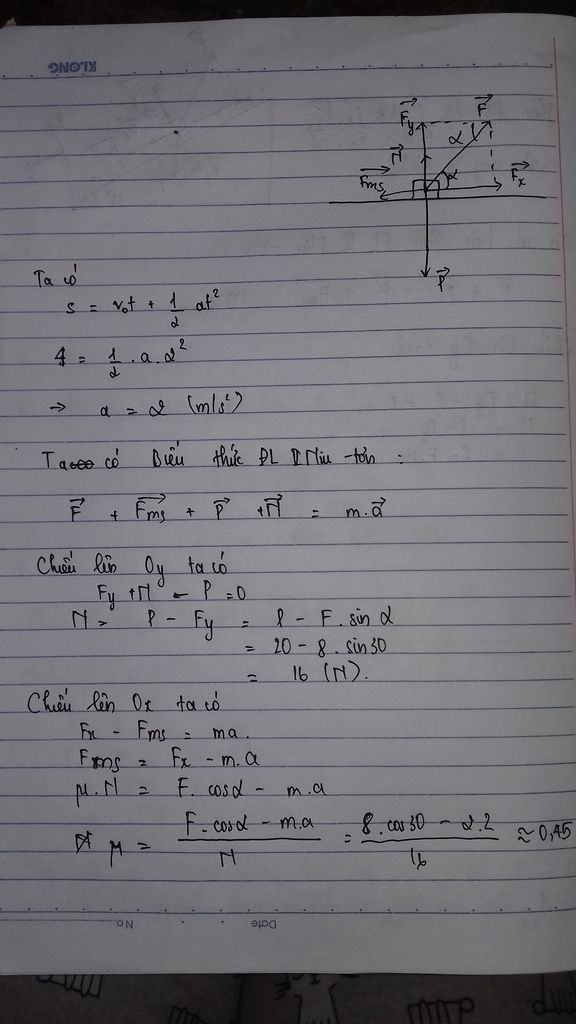 KLONG
F⃗y F⃗
N⃗ α
F⃗ms α F⃗x
P⃗
Ta có
s = v₀t + 1/2 at²
4 = 1/2 . a . 2²
→ a = 2 (m/s²)
Ta có Biểu thức ĐL II Niu-tơn :
F⃗ + F⃗ms + P⃗ + N⃗ = m.a⃗
Chiếu lên Oy ta có
Fy + N - P = 0
N = P - Fy = P - F. sin α
= 20 - 8. sin30
= 16 (N).
Chiếu lên Ox ta có
Fx - Fms = ma.
Fms = Fx - m.a
μ.N = F. cosα - m.a
μ = (F.cosα - m.a)/N = (8.cos30 - 2.2)/16 ≈ 0,45
No. Date